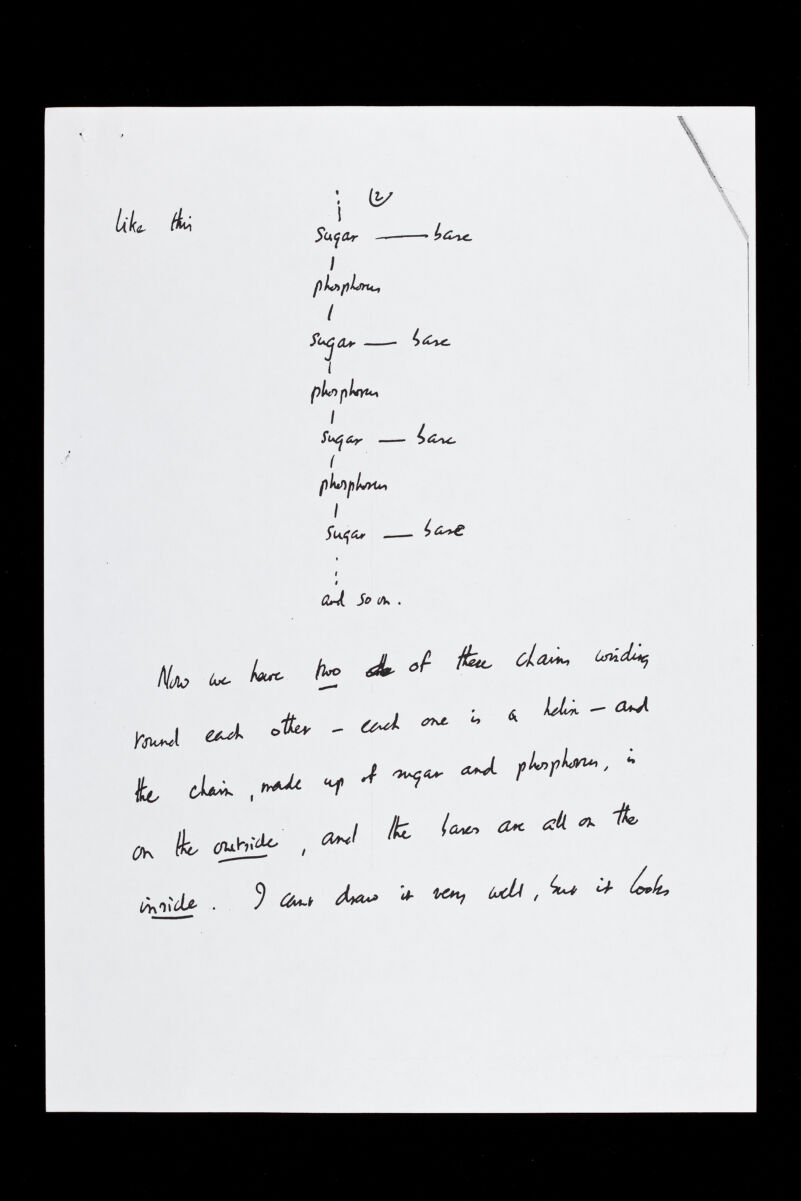 (2)
like this
sugar — base
phosphorus
sugar — base
phosphorus
sugar — base
phosphorus
sugar — base
and so on.
Now we have two of these chains winding
round each other – each one is a helix – and
the chain, made up of sugar and phosphorus, is
on the outside, and the bases are all on the
inside. I can't draw it very well, but it looks